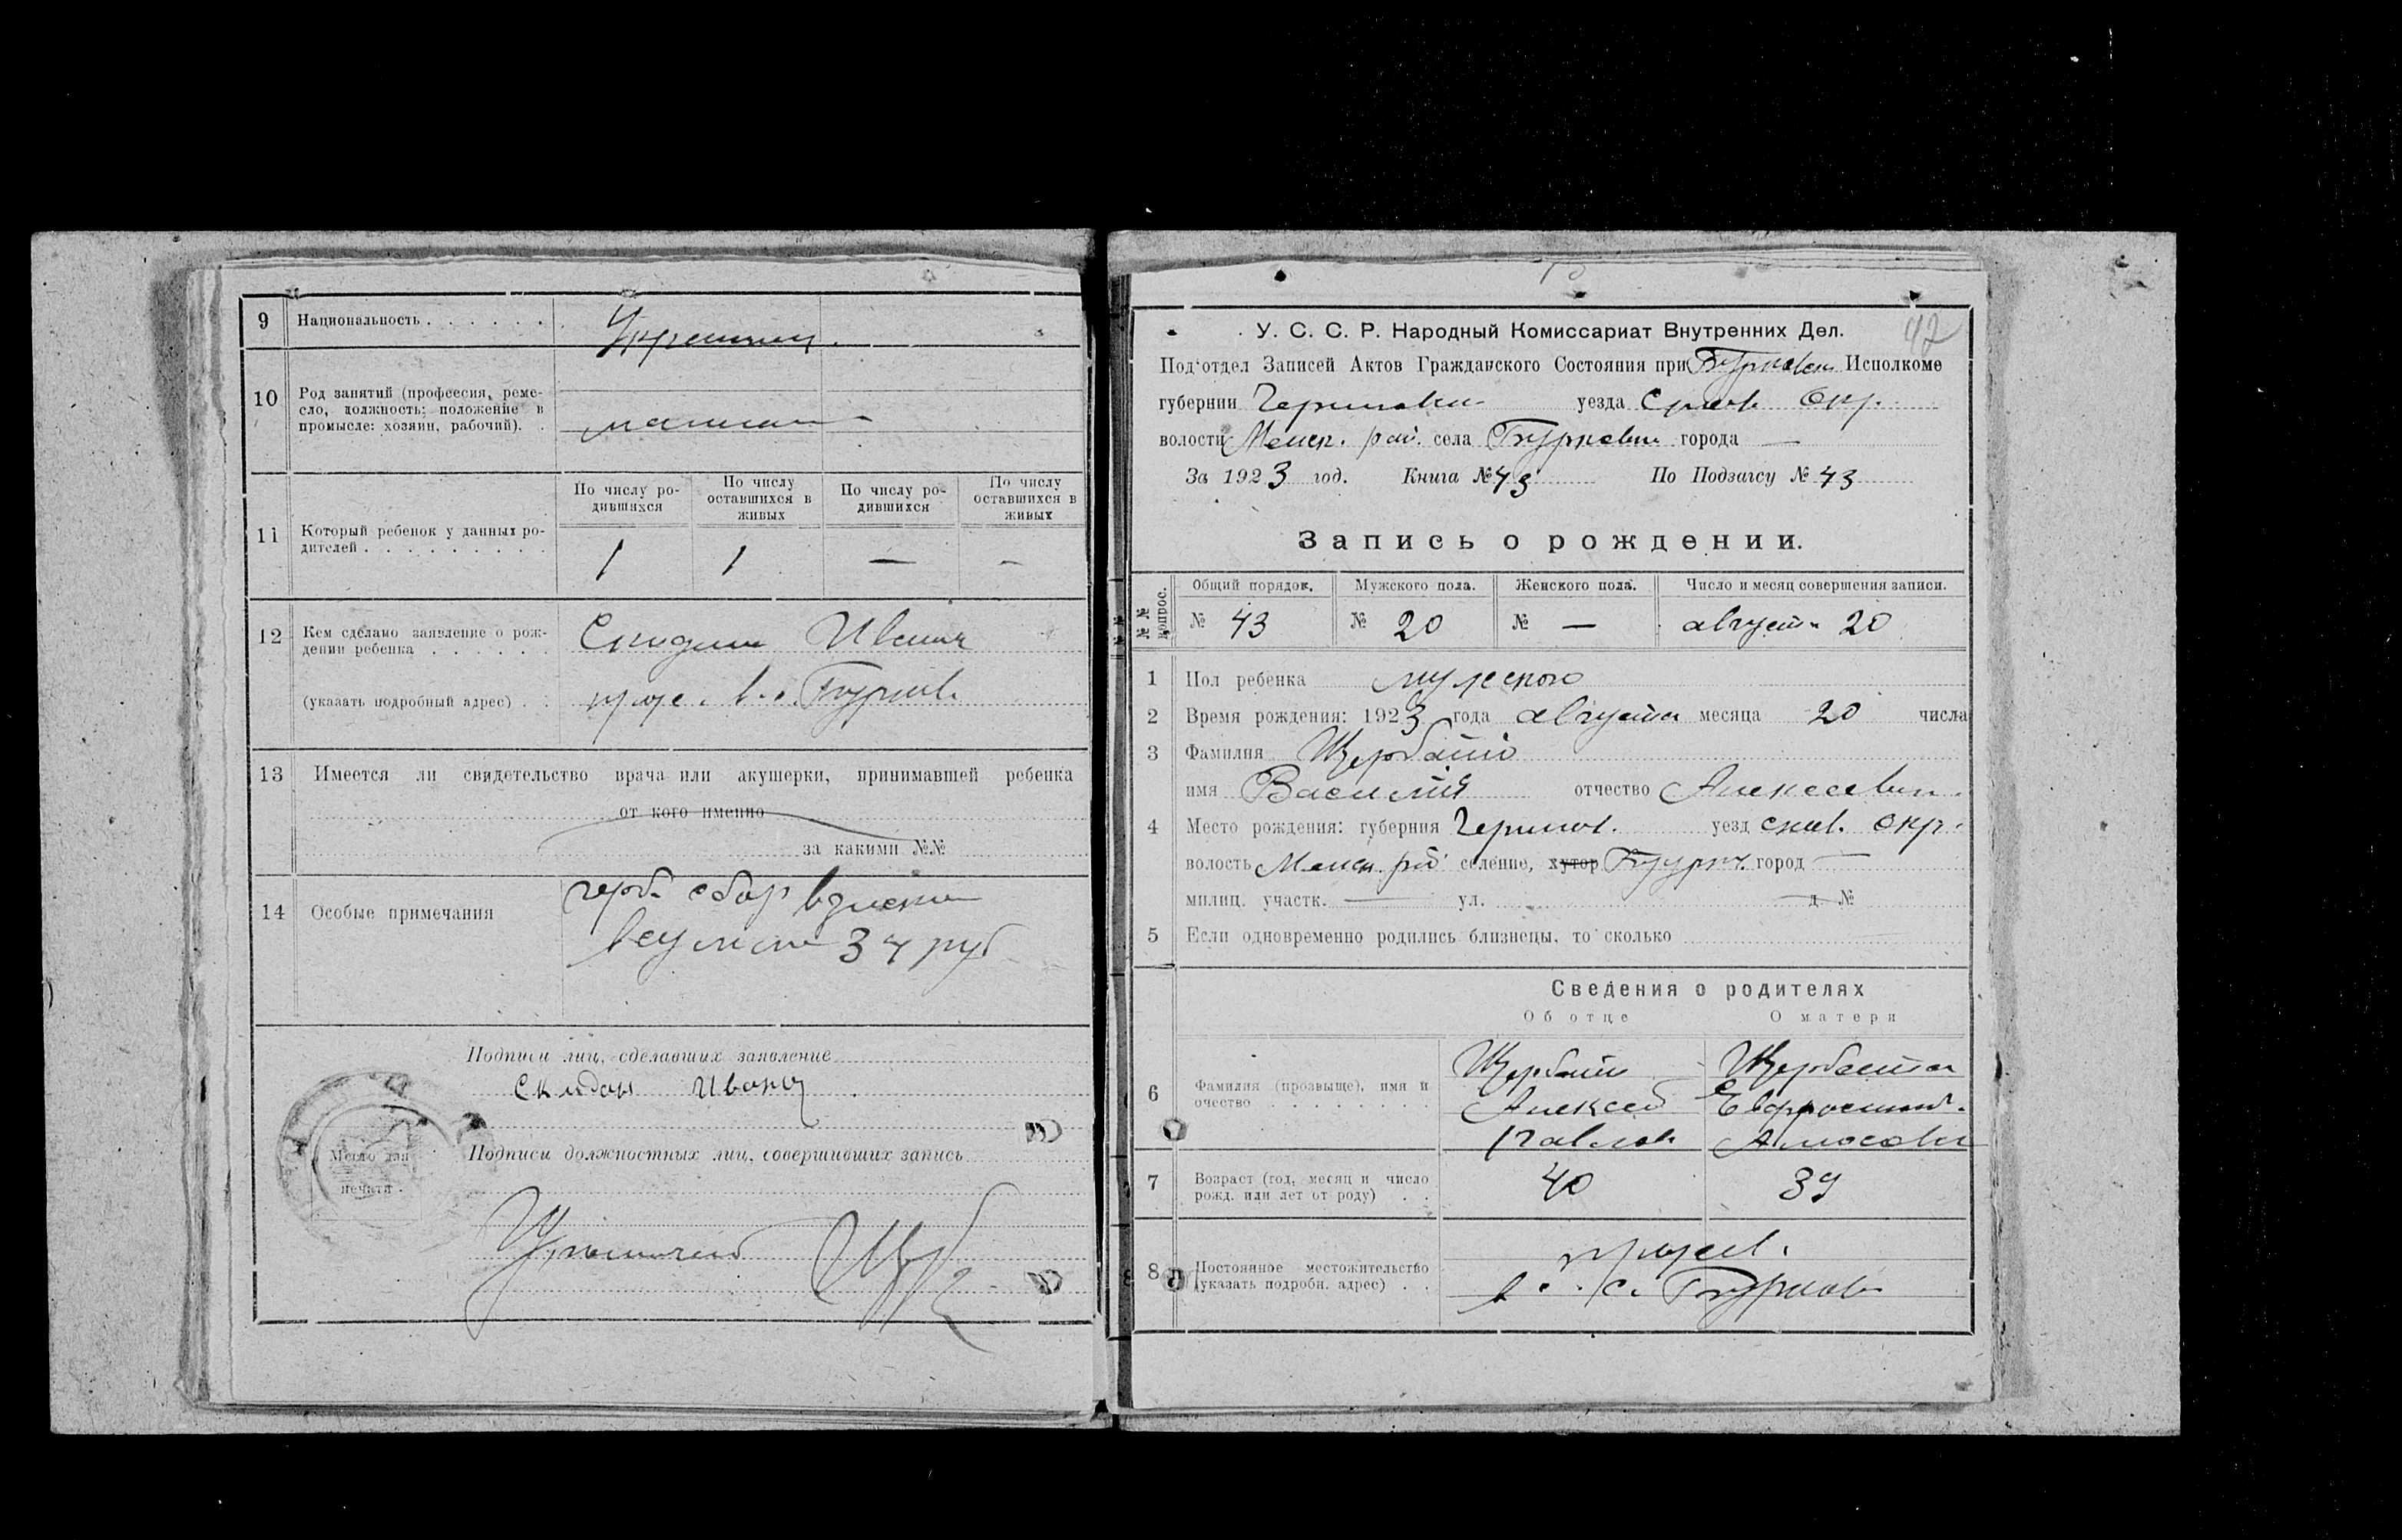 9 Национальность . . . . . . Украинец.
10 Род занятий (профессия, реме-
сло, должность; положение в
промысле: хозяин, рабочий). .
11 Который ребенок у данных ро-
дителей . . . . . . . . .
По числу ро-
дившихся
По числу
оставшихся в
живых
По числу ро-
дившихся
По числу
оставшихся в
живых
1 1 — —
12 Кем сделано заявление о рож-
дении ребенка . . . . . .
(указать подробный адрес) . .
13 Имеется ли свидетельство врача или акушерки, принимавшей ребенка
от кого именно
за какими №№
14 Особые примечания
герб сбор взыскан
в сумме 34 руб
Подписи лиц, сделавших заявление
Скидан Иванъ
Место для
печати.
Подписи должностных лиц, совершивших запись
42
У. С. С. Р. Народный Комиссариат Внутренних Дел.
Под'отдел Записей Актов Гражданского Состояния при Бурковск Исполкоме
губернии Чернигов уезда Снов. Окр.
волости Менск. рай. села Бурковки города —
За 1923 год. Книга № 43 По Подзагсу № 43
Запись о рождении.
№№ вопрос.
Общий порядок. Мужского пола. Женского пола. Число и месяц совершения записи.
№ 43 № 20 № — август 20
1 Пол ребенка мужского
2 Время рождения: 1923 года августа месяца 20 числа
3 Фамилия Щербатий
имя Василий отчество Алексеевич
4 Место рождения: губерния Чернигов. уезд Снов. окр.
волость Менск. рай селение, хутор Бурк. город —
милиц. участк. — ул. д. №
5 Если одновременно родились близнецы, то сколько
Сведения о родителях
Об отце О матери
6 Фамилия (прозвыще), имя и
очество . . . . . . . .
Щербатий
Алексей
Павлов
Щербатая
Евфросиния
Амосовн
7 Возраст (год, месяц и число
рожд. или лет от роду) . .
40 39
8 Постоянное местожительство
(указать подробн. адрес) . .
прожив.
в с. Бурков